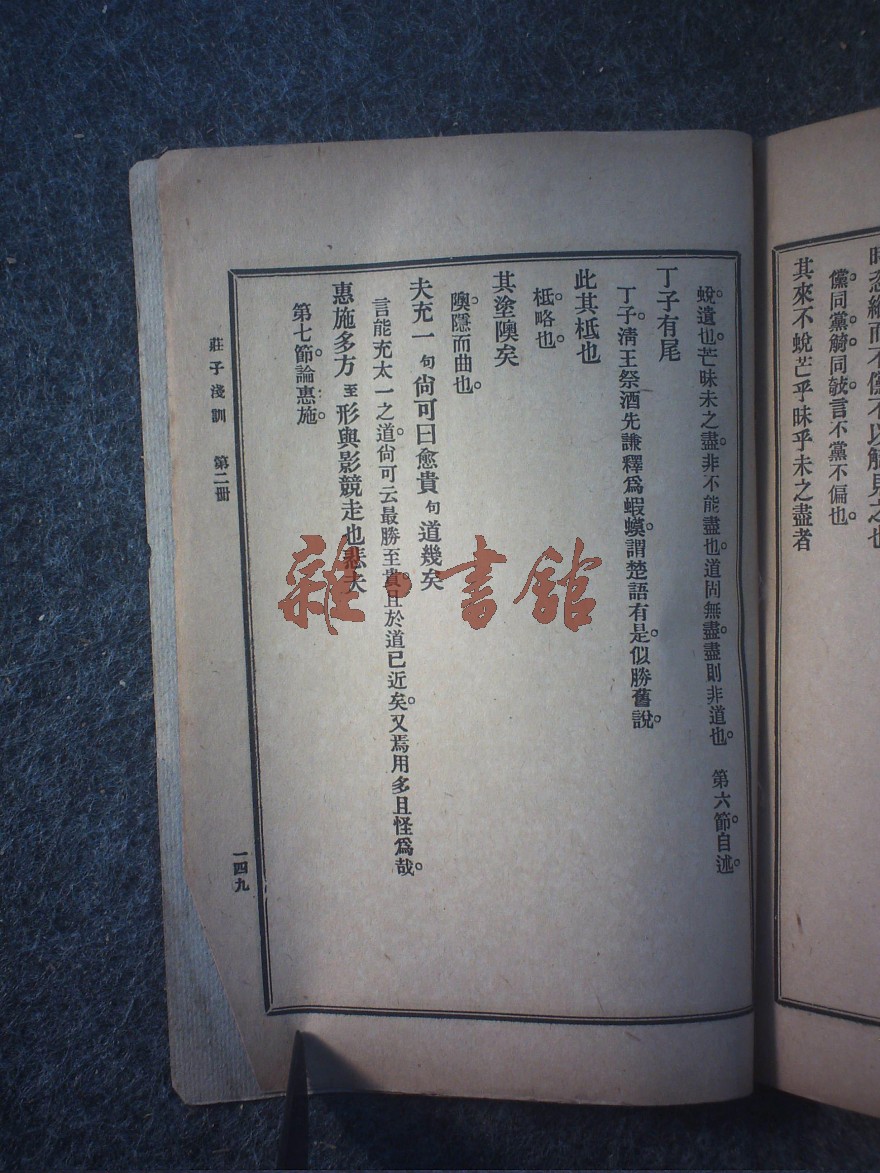 時恣縱而不儻不以觭見之也
儻同黨觭同攲言不黨不偏也。
其來不蛻芒乎昧乎未之盡者
蛻。遺也。芒昧未之盡。非不能盡也。道固無盡。盡則非道也。 第六節。自述。
丁子有尾
丁子。淸王祭酒先謙釋爲蝦蟆。謂楚語有是。似勝舊說。
此其柢也
柢。略也。
其塗隩矣
隩。隱而曲也。
夫充一 句 尙可曰愈貴 句 道幾矣
言能充太一之道。尙可云最勝至貴。且於道已近矣。又焉用多且怪爲哉。
惠施多方 至 形與影競走也悲夫
第七節。論惠施。
莊子淺訓 第二冊
一四九
雜·書館